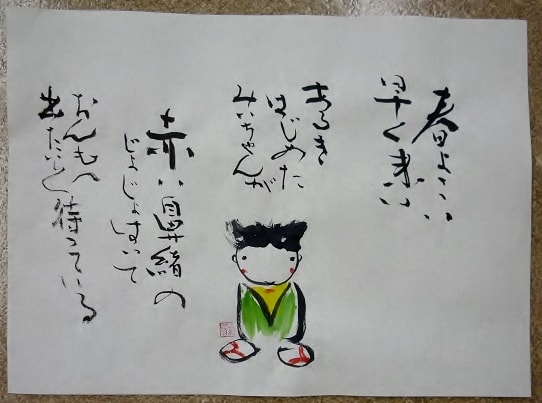 春よこい
早く来い
あるき
はじめた
みいちゃんが
赤い鼻緒の
じょじょはいて
おんもへ
出たいと待っている